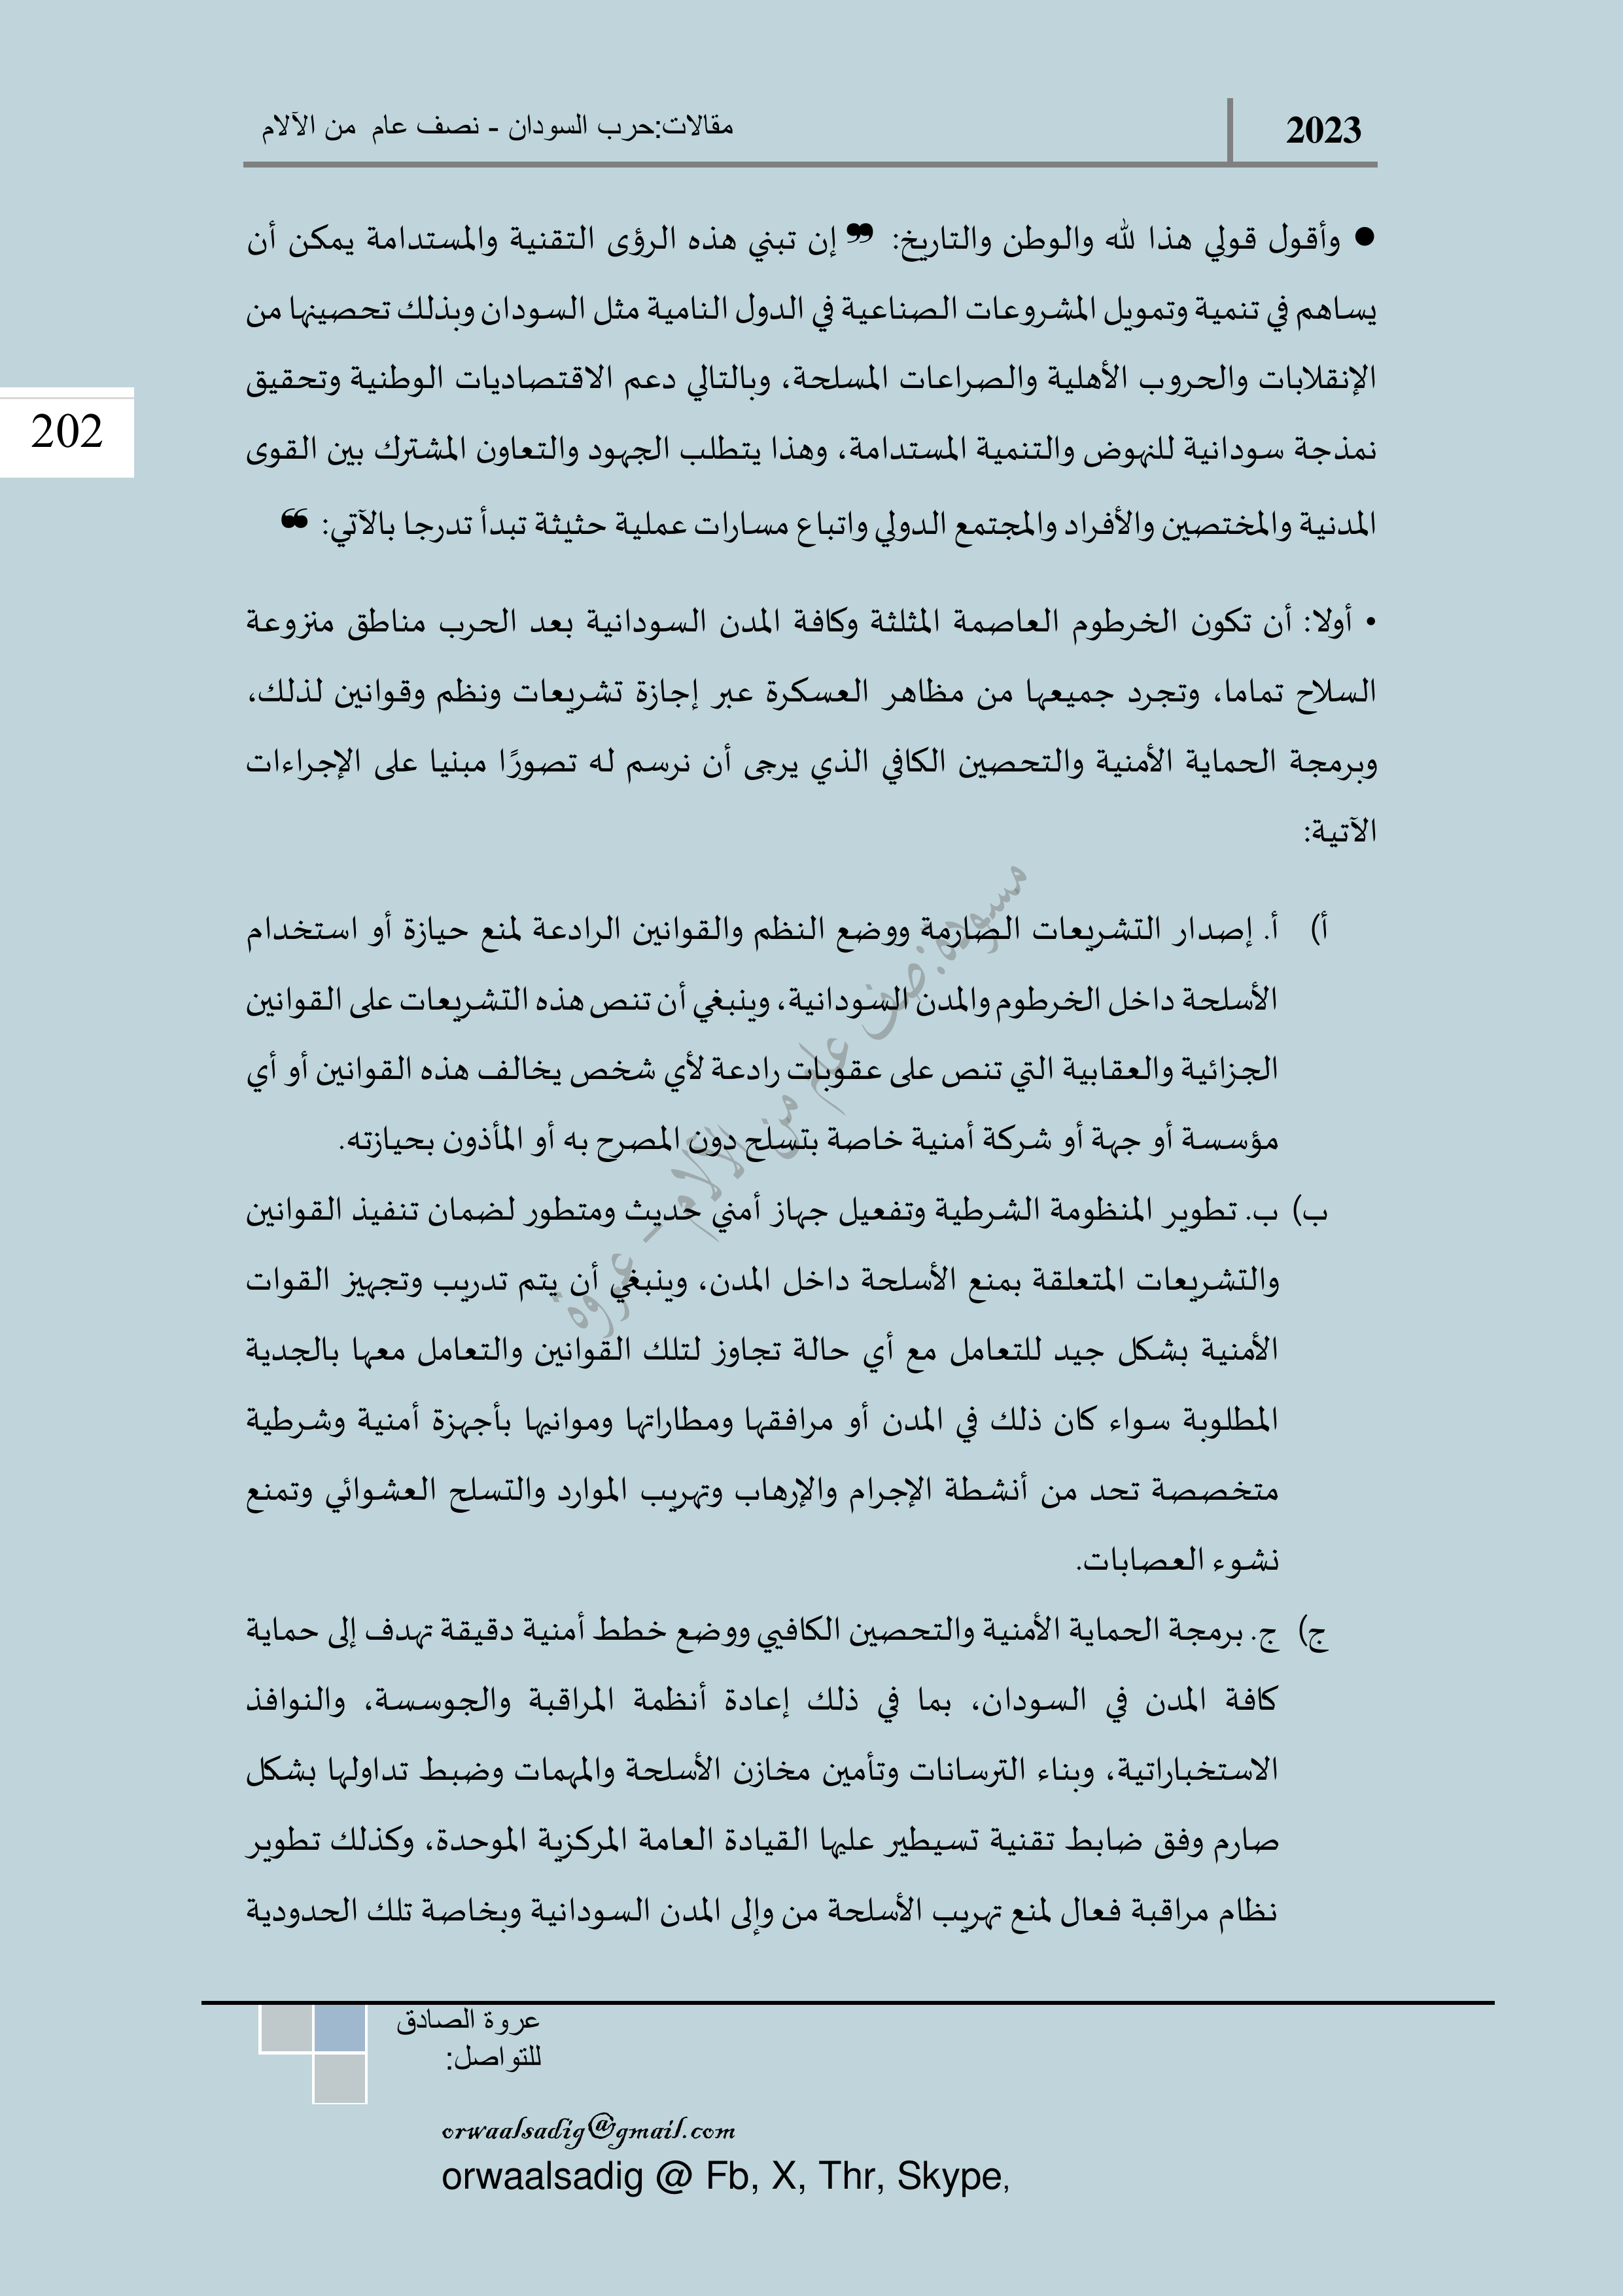 2023
مقالات:حرب السودان - نصف عام من الآلام
202
● وأقول قولي هذا لله والوطن والتاريخ: ❞ إن تبني هذه الرؤى التقنية والمستدامة يمكن أن
يساهم في تنمية وتمويل المشروعات الصناعية في الدول النامية مثل السودان وبذلك تحصينها من
الإنقلابات والحروب الأهلية والصراعات المسلحة، وبالتالي دعم الاقتصاديات الوطنية وتحقيق
نمذجة سودانية للنهوض والتنمية المستدامة، وهذا يتطلب الجهود والتعاون المشترك بين القوى
المدنية والمختصين والأفراد والمجتمع الدولي واتباع مسارات عملية حثيثة تبدأ تدرجا بالآتي: ❝
• أولا: أن تكون الخرطوم العاصمة المثلثة وكافة المدن السودانية بعد الحرب مناطق منزوعة
السلاح تماما، وتجرد جميعها من مظاهر العسكرة عبر إجازة تشريعات ونظم وقوانين لذلك،
وبرمجة الحماية الأمنية والتحصين الكافي الذي يرجى أن نرسم له تصورًا مبنيا على الإجراءات
الآتية:
أ) أ. إصدار التشريعات الصارمة ووضع النظم والقوانين الرادعة لمنع حيازة أو استخدام
الأسلحة داخل الخرطوم والمدن السودانية، وينبغي أن تنص هذه التشريعات على القوانين
الجزائية والعقابية التي تنص على عقوبات رادعة لأي شخص يخالف هذه القوانين أو أي
مؤسسة أو جهة أو شركة أمنية خاصة بتسلح دون المصرح به أو المأذون بحيازته.
ب) ب. تطوير المنظومة الشرطية وتفعيل جهاز أمني حديث ومتطور لضمان تنفيذ القوانين
والتشريعات المتعلقة بمنع الأسلحة داخل المدن، وينبغي أن يتم تدريب وتجهيز القوات
الأمنية بشكل جيد للتعامل مع أي حالة تجاوز لتلك القوانين والتعامل معها بالجدية
المطلوبة سواء كان ذلك في المدن أو مرافقها ومطاراتها وموانيها بأجهزة أمنية وشرطية
متخصصة تحد من أنشطة الإجرام والإرهاب وتهريب الموارد والتسلح العشوائي وتمنع
نشوء العصابات.
ج) ج. برمجة الحماية الأمنية والتحصين الكافيي ووضع خطط أمنية دقيقة تهدف إلى حماية
كافة المدن في السودان، بما في ذلك إعادة أنظمة المراقبة والجوسسة، والنوافذ
الاستخباراتية، وبناء الترسانات وتأمين مخازن الأسلحة والمهمات وضبط تداولها بشكل
صارم وفق ضابط تقنية تسيطير عليها القيادة العامة المركزية الموحدة، وكذلك تطوير
نظام مراقبة فعال لمنع تهريب الأسلحة من وإلى المدن السودانية وبخاصة تلك الحدودية
مسوده:صف عام من الآلام – عروة
عروة الصادق
للتواصل:
orwaalsadig@gmail.com
orwaalsadig @ Fb, X, Thr, Skype,